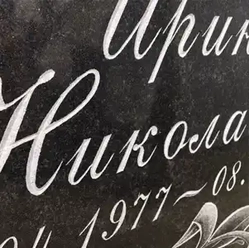 Ирин
Никола
04.1977~08.